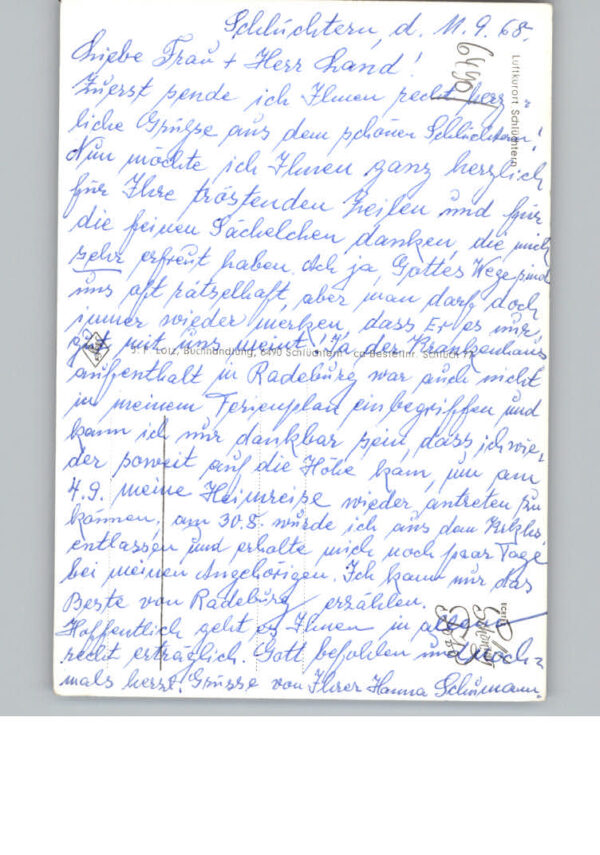 Schlüchtern, d. 11.9.68.
Liebe Frau + Herr Land!
Zuerst sende ich Ihnen recht herz=
liche Grüße aus dem schönen Schlüchtern!
Nun möchte ich Ihnen ganz herzlich
für Ihre tröstenden Zeilen und für
die feinen Sächelchen danken, die mich
sehr erfreut haben. Ach ja, Gottes Wege sind
uns oft rätselhaft, aber man darf doch
immer wieder merken, dass Er es nur
gut mit uns meint! Ja der Krankenhaus
aufenthalt in Radeburg war auch nicht
in meinem Ferienplan einbegriffen und
kann ich nur dankbar sein, dass ich wie-
der soweit auf die Höhe kam, um am
4.9. meine Heimreise wieder antreten zu
können. Am 30.8. wurde ich aus dem
entlassen und erholte mich noch paar Tage
bei meinen Angehörigen. Ich kann nur das
Beste von Radeburg erzählen.
Hoffentlich geht es Ihnen in allem
recht erträglich. Gott befohlen und noch=
mals herzl. Grüsse von Ihrer Hanna Schumann.
6490
Luftkurort Schlüchtern
Lotz, Buchhandlung, 6490 Schlüchtern